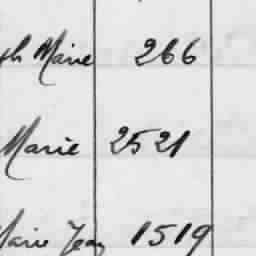 Marie 266
Marie 2521
Marie Jean 1519